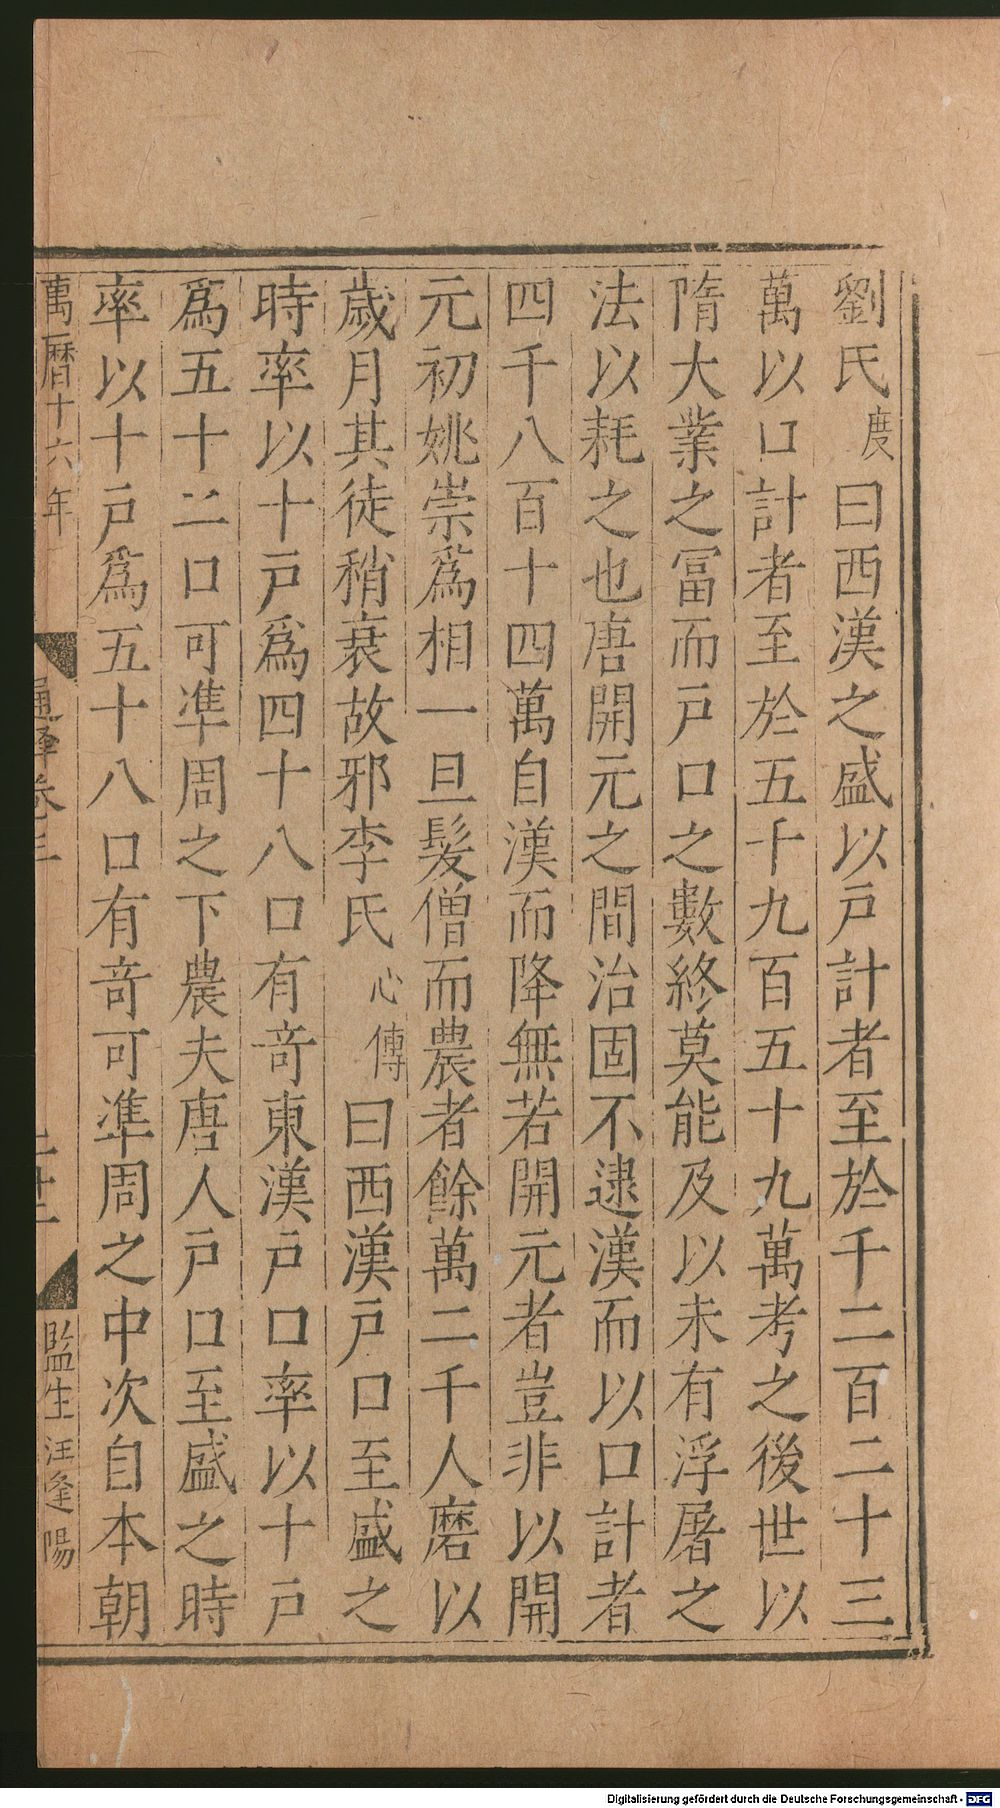 劉氏度曰西漢之盛以戸計者至於千二百二十三
萬以口計者至於五千九百五十九萬考之後世以
隋大業之冨而戸口之數終莫能及以未有浮屠之
法以耗之也唐開元之間治固不逮漢而以口計者
四千八百十四萬自漢而降無若開元者豈非以開
元初姚崇爲相一旦髮僧而農者餘萬二千人磨以
歲月其徒稍衰故邪李氏心傳曰西漢戸口至盛之
時率以十戸爲四十八口有竒東漢戸口率以十戸
爲五十二口可準周之下農夫唐人戸口至盛之時
率以十戸爲五十八口有竒可準周之中次自本朝
萬曆十六年 卷三 監生汪逢陽
Digitalisierung gefördert durch die Deutsche Forschungsgemeinschaft - DFG